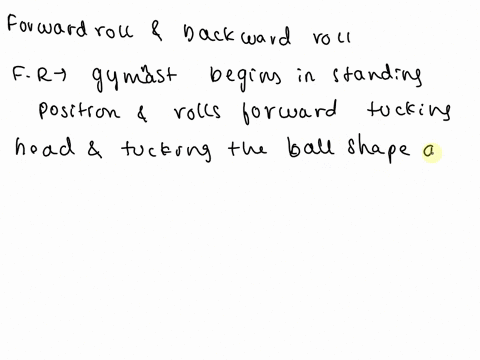 Forward roll & backward roll
F.R → gymnast begins in standing
position & rolls forward tucking
head & tucking the ball shape a